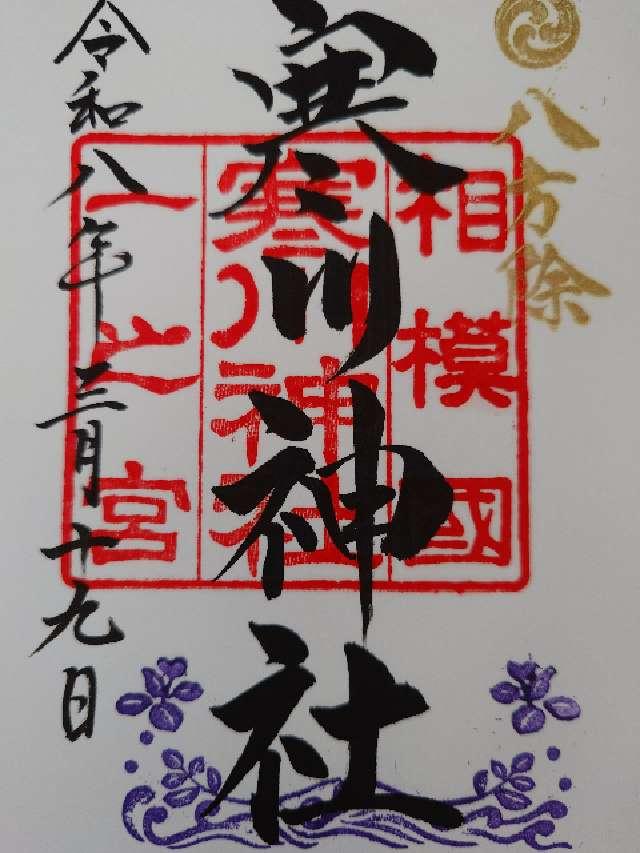 八方除
相模國
寒川神社
一之宮
寒川神社
令和八年三月十九日